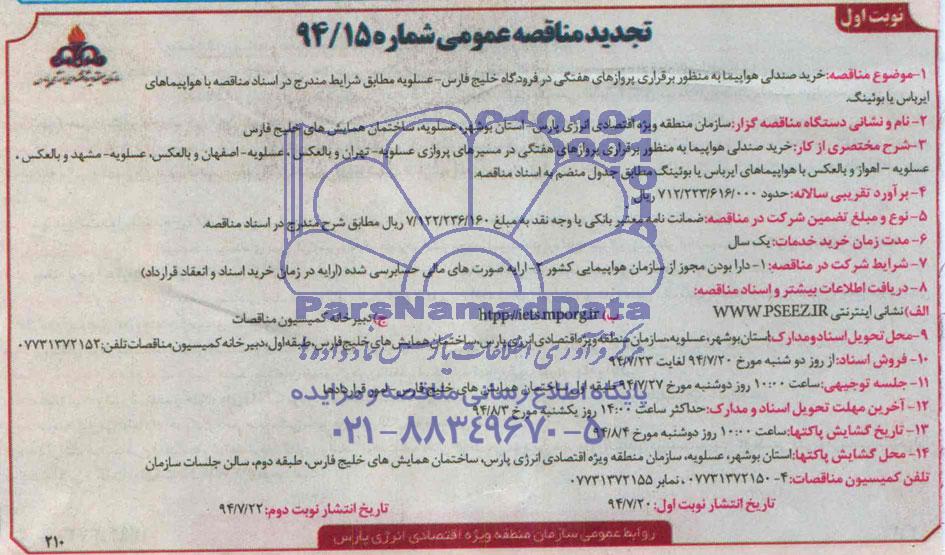 نوبت اول
تجدید مناقصه عمومی شماره ۹۴/۱۵
۱-موضوع مناقصه:خرید صندلی هواپیما به منظور برقراری پروازهای هفتگی در فرودگاه خلیج فارس-عسلویه مطابق شرایط مندرج در اسناد مناقصه با هواپیماهای
ایرباس یا بوئینگ.
۲- نام و نشانی دستگاه مناقصه گزار:سازمان منطقه ویژه اقتصادی انرژی پارس- استان بوشهر، عسلویه، ساختمان همایش های خلیج فارس
۳-شرح مختصری از کار: خرید صندلی هواپیما به منظور برقراری پروازهای هفتگی در مسیرهای پروازی عسلویه-تهران و بالعکس ، عسلویه-اصفهان و بالعکس، عسلویه-مشهد و بالعکس ،
عسلویه - اهواز و بالعکس با هواپیماهای ایرباس یا بوئینگ مطابق جدول منضم به اسناد مناقصه.
۴- برآورد تقریبی سالانه: حدود ۷۱۲/۲۲۳/۶۱۶/۰۰۰ ریال
۵- نوع و مبلغ تضمین شرکت در مناقصه: ضمانت نامه معتبر بانکی یا وجه نقد به مبلغ ۷/۱۲۲/۲۳۶/۱۶۰ ریال مطابق شرح مندرج در اسناد مناقصه.
۶- مدت زمان خرید خدمات: یک سال
۷- شرایط شرکت در مناقصه: ۱- دارا بودن مجوز از سازمان هواپیمایی کشور ۲- ارایه صورت های مالی حسابرسی شده (ارایه در زمان خرید اسناد و انعقاد قرارداد)
۸- دریافت اطلاعات بیشتر و اسناد مناقصه:
الف) نشانی اینترنتی WWW.PSEEZ.IR ب) htpp://iets.mporg.ir ج) دبیرخانه کمیسیون مناقصات
۹-محل تحویل اسناد و مدارک:استان بوشهر، عسلویه،سازمان منطقه ویژه اقتصادی انرژی پارس، ساختمان همایش های خلیج فارس، طبقه اول، دبیرخانه کمیسیون مناقصات تلفن: ۰۷۷۳۱۳۷۲۱۵۲
۱۰- فروش اسناد: از روز دو شنبه مورخ ۹۴/۷/۲۰ لغایت ۹۴/۷/۲۳
۱۱- جلسه توجیهی: ساعت ۱۰:۰۰ روز دوشنبه مورخ ۹۴/۷/۲۷ طبقه اول ساختمان همایش های خلیج فارس- امور قراردادها
۱۲- آخرین مهلت تحویل اسناد و مدارک: حداکثر ساعت ۱۴:۰۰ روز یکشنبه مورخ ۹۴/۸/۳
۱۳- تاریخ گشایش پاکتها: ساعت ۱۰:۰۰ روز دوشنبه مورخ ۹۴/۸/۴
۱۴- محل گشایش پاکتها: استان بوشهر، عسلویه، سازمان منطقه ویژه اقتصادی انرژی پارس، ساختمان همایش های خلیج فارس، طبقه دوم، سالن جلسات سازمان
تلفن کمیسیون مناقصات: ۴-۰۷۷۳۱۳۷۲۱۵۰ ، نمابر ۰۷۷۳۱۳۷۲۱۵۵
تاریخ انتشار نوبت اول: ۹۴/۷/۲۰ تاریخ انتشار نوبت دوم: ۹۴/۷/۲۲
روابط عمومی سازمان منطقه ویژه اقتصادی انرژی پارس
۲۱۰
ParsNamadData
مرکز فرآوری اطلاعات پارس نماد داده ها
پایگاه اطلاع رسانی مناقصه و مزایده
۰۲۱-۸۸۳۴۹۶۷۰-۵